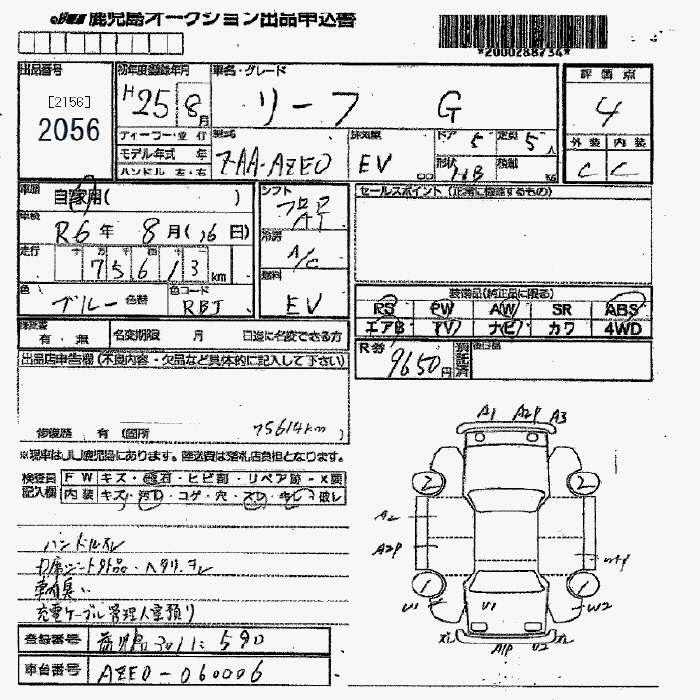 JU 鹿児島オークション出品申込書
*2000288734*
出品番号
[2156]
2056
初年度登録年月
H25 8月
車名・グレード
リーフ G
評価点
4
外装 内装
C C
ディーラー・並行
モデル年式 年
ハンドル 左・右
型式
ZAA-AZE0
排気量
EV
ドア 5
定員 5人
形状 HB
積載 KG
車歴
自家用( )
車検
R6年 8月(16日)
走行
75613km
色
ブルー
色替
色コード
RBJ
シフト
フロア
AT
冷房
A/C
燃料
EV
セールスポイント(正常に機能するもの)
装備品(純正品に限る)
PS PW AW SR ABS
エアB TV ナビ カワ 4WD
R券
9650円
預託済
後日品
保証書
有・無
名変期限 月 日迄に名変できる方
出品店申告欄(不良内容・欠品など具体的に記入して下さい)
修復歴 有(箇所
75614km)
※現車はJU鹿児島にあります。陸送費は落札店負担となります。
検査員記入欄
FW キズ・飛石・ヒビ割・リペア跡・X要
内装 キズ・汚れ・コゲ・穴・スレ・キレ・破レ
ハンドルスレ
車内臭い
充電ケーブル管理人室預り
登録番号
鹿児島301に590
車台番号
AZE0-060006
A1 A2P A3
2 2
A2
A2P
1 1
U1
U1
W2
A1P
U2